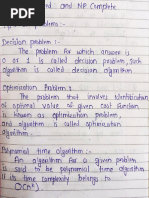 and NP Complete
problem :-
Decision problem :-
The problem for which answer is
0 or 1 is called decision problem, such
algorithm is called decision algorithm.
Optimization Problem :
The problem that involves
optimal value of given cost function
is known as optimization problem,
and algorithm is called optimization
algorithm.
Polynomial time algorithm :-
An algorithm for a given problem
is said to be polynomial time algorithm
time complexity belongs to